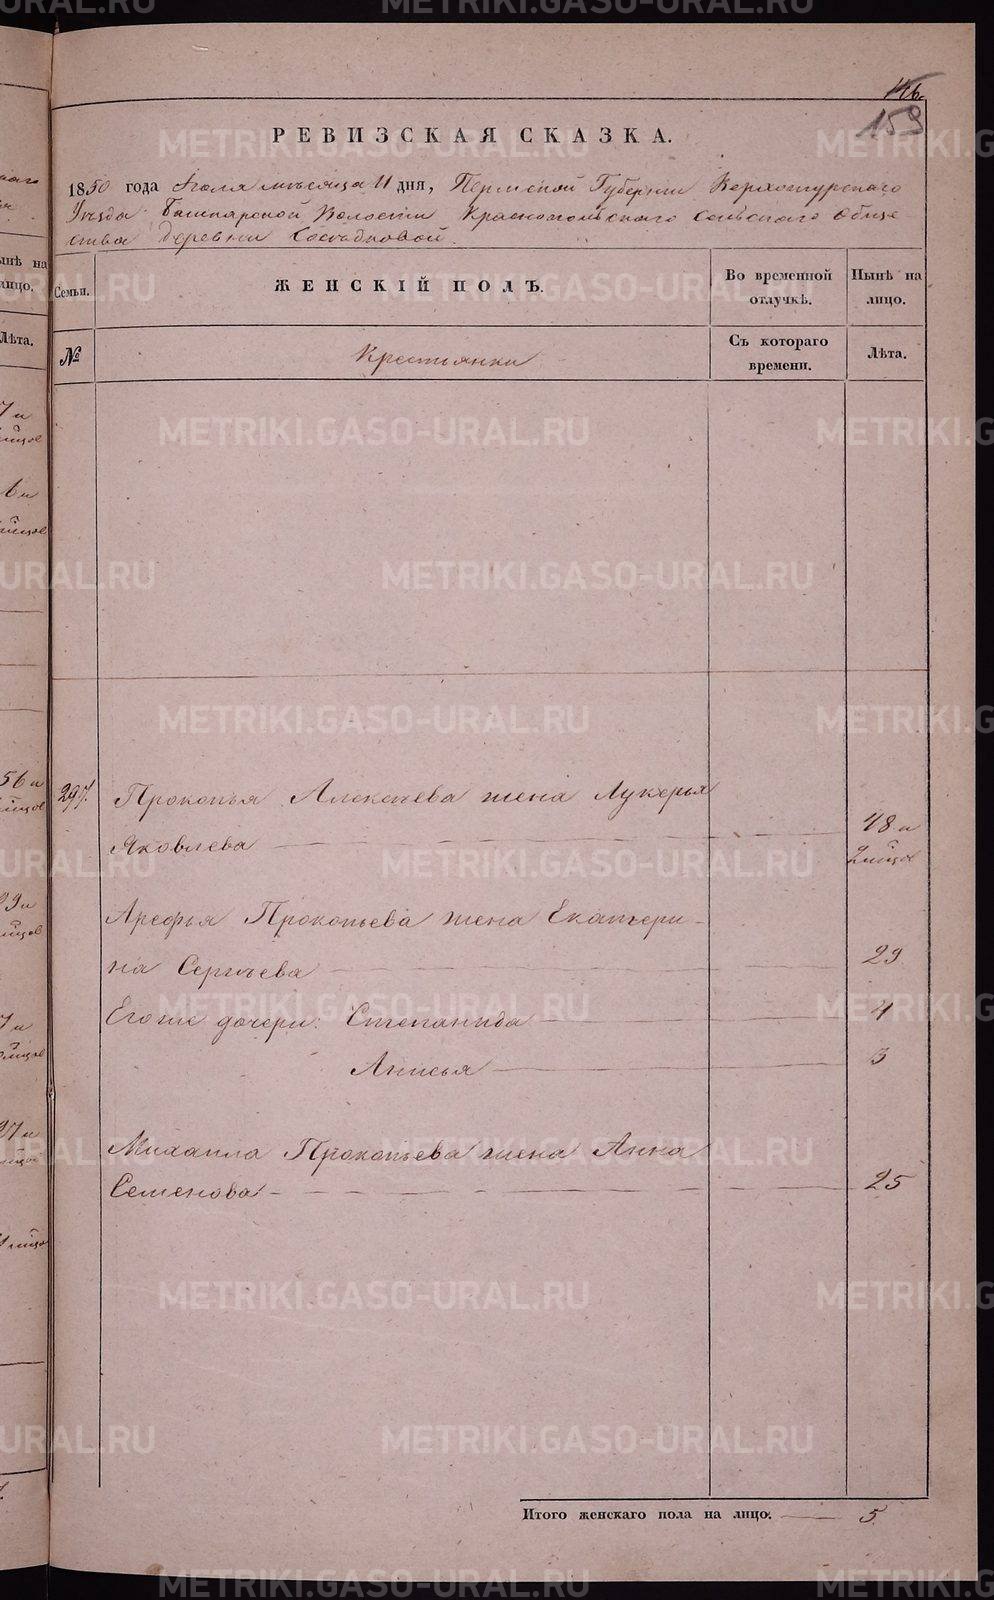 146.
159
РЕВИЗСКАЯ СКАЗКА.
1850 года Іюля мѣсяца 11 дня, Пермской Губерніи Верхотурскаго
Уѣзда Башкарской Волости Краснопольскаго Сельскаго Обще
ства Деревни
Семьи.
ЖЕНСКІЙ ПОЛЪ.
Во временной отлучкѣ.
Нынѣ на лицо.
№
Крестьянки
Съ котораго времени.
Лѣта.
297. Прокопья Алексѣева жена Лукерья
Яковлева 48 и
2 мѣсяцов
Арефья Прокопьева жена Екатери-
на Сергѣева 29
Его же дочери: Степанида 4
Анисья 3
Михаила Прокопьева жена Анна
Семенова 25
Итого женскаго пола на лицо. 5
METRIKI.GASO-URAL.RU